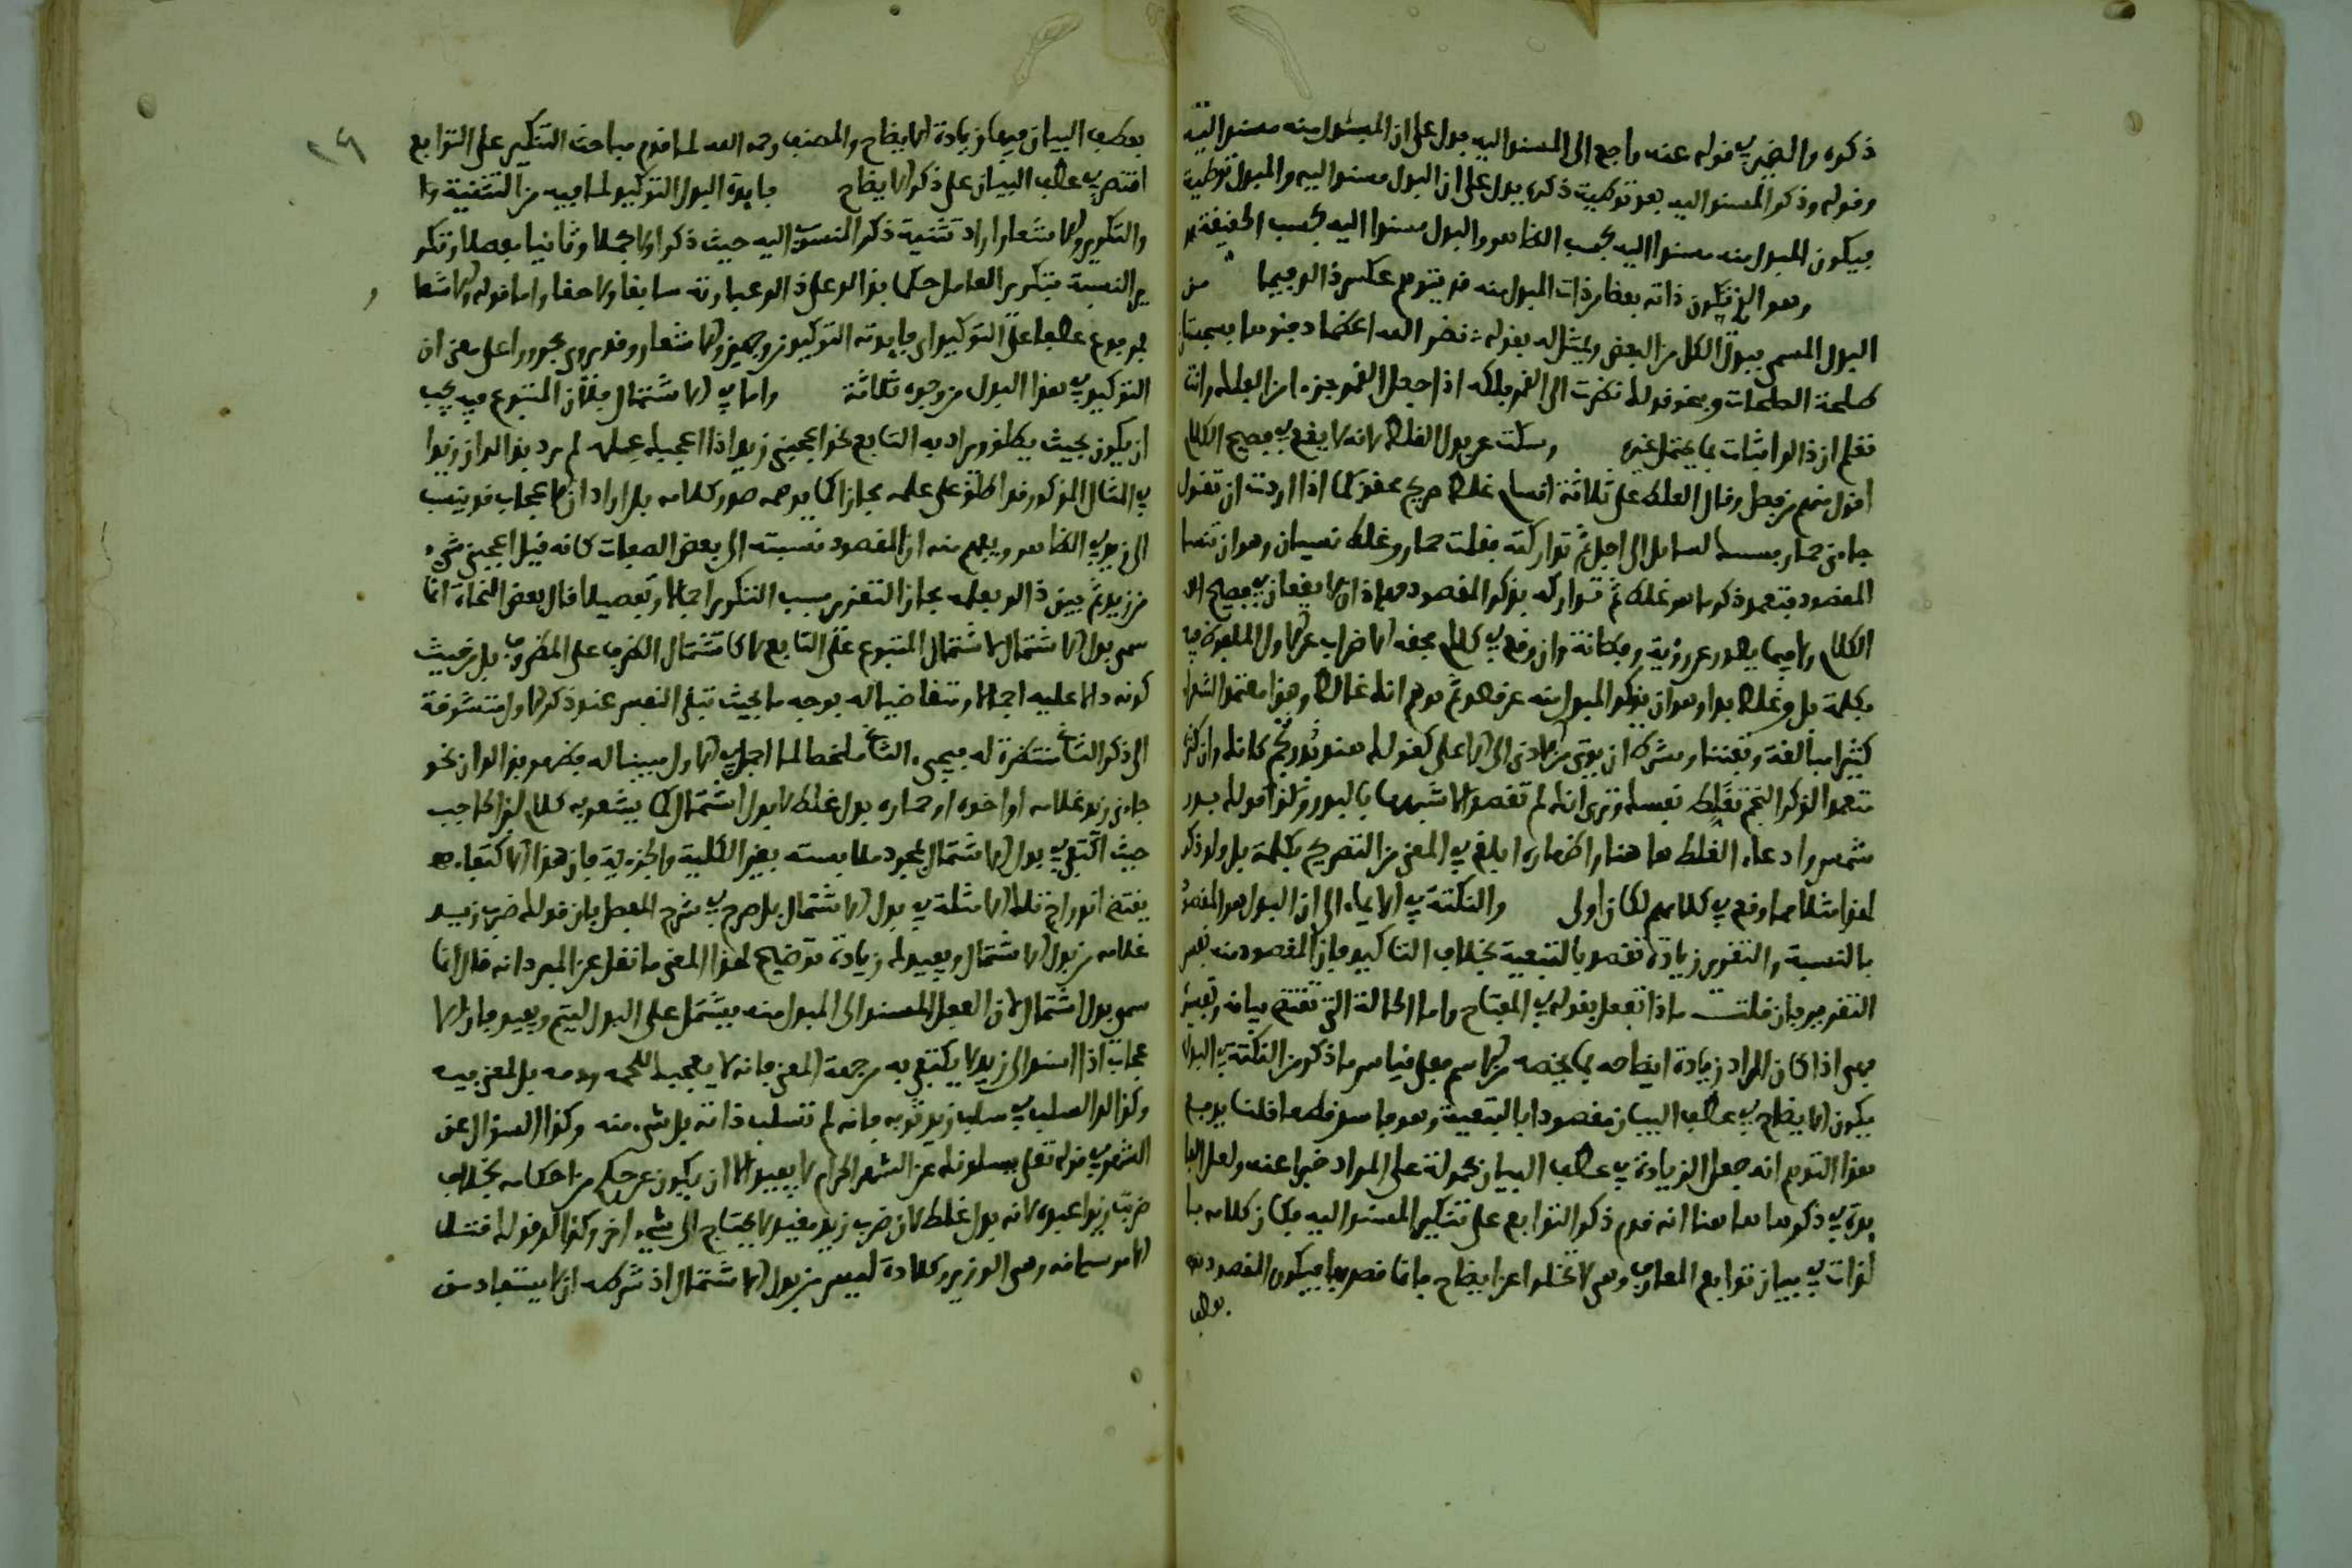 ذكره والضمير في قوله عنه راجع الى المسند اليه يدل على ان المبدل منه مسند اليه
وقوله وذكر المسند اليه بعد توطية ذكره يدل على ان البدل مسند اليه والمبدل توطية
فيكون المبدل منه مسندا اليه بحسب الظاهر والبدل مسندا اليه بحسب الحقيقة
وهو الذي تكون ذاته بعضا من ذات المبدل منه قد يتوهم عكس ذلك فيما من
البدل المسمى ببدل الكل من البعض ويمثل له بقوله نضر الله اعظما دفنوها بسجستان
طلحة الطلحات وبنحو قولك نظرت الى القمر فلكه اذا جعل القمر جزءا من الفلك وانت
تعلم ان ذلك اثبات بما يحتمل غيره وسكت عن بدل الغلط لانه لا يقع في فصيح الكلام
اقول منهم من فصل وقال الغلط على ثلاثة اقسام غلط صريح محقق كما اذا اردت ان تقول
جاءني حمار فسبقك لسانك الى رجل ثم تداركته فقلت حمار وغلط نسيان وهو ان تنسى
المقصود فتعمد ذكر ما هو غلط ثم تداركه بذكر المقصود فهذان لا يقعان في فصيح
الكلام ولا فيما يصدر عن روية وفطانة وان وقع في كلام فحقه الاضراب عن الاول المغلوط فيه
بكلمة بل وغلط بداء وهو ان يذكر المبدل منه عن قصد ثم يوهم انك غالط وهذا معتمد الشعراء
كثيرا مبالغة وتفننا وشرطه ان يرتقي من الادنى الى الاعلى كقولك هند بدر نجم كانك وان كنت
متعمدا لذكر النجم تغلط نفسك وترى انك لم تقصد الا تشبيهها بالبدر وكذا قولك بدر
شمس وادعاء الغلط ها هنا واظهاره ابلغ في المعنى من التصريح بكلمة بل ولو ذكر
لهذا مثالا مما وقع في كلامهم لكان اولى والنكتة في الايماء الى ان البدل هو المقصود
بالنسبة والتقرير زيادة تقصد بالتبعية بخلاف التاكيد فان المقصود منه نفس
التقرير فان قلت ماذا تفعل بقوله في المفتاح واما الحالة التي تقتضي بيانه وتفسيره
فهي اذا كان المراد زيادة ايضاحه بما يخصه من الاسم فعلى قياس ما ذكر من النكتة في البدل
يكون الايضاح في عطف البيان مقصودا بالتبعية وهو فاسد قطعا قلنا يدفع
هذا التوهم انه جعل الزيادة في عطف البيان محمولة على المراد خبرا عنه ولعل الفا
يدة في ذكرها ها هنا انه قدم ذكر التوابع على تنكير المسند اليه فكان كلامه با
لذات في بيان توابع المعارف وهي لا تخلوا عن ايضاح ما فاقصد بها فيكون المقصود
بعطف
٢٩
بعطف البيان فيها زيادة الايضاح والمصنف رحمه الله لما قدم مباحث التنكير على التوابع
اقتصر في عطف البيان على ذكر الايضاح فايدة البدل التوكيد لما فيه من التثنية
والتكرير والاشعار اراد تثنية ذكر المنسوب اليه حيث ذكر اولا مجملا وثانيا مفصلا وتكر
ير النسبة بتكرير العامل حكما فذلك على ذلك عبارته سابقا ولاحقا واما قوله والاشعا
ر فمرفوع عطفا على التوكيد اي فايدته التوكيد من وجهين والاشعار وقد يروى مجرورا على معنى ان
التوكيد في هذا البدل من وجوه ثلاثة واما في الاشتمال فلان المتبوع فيه يجب
ان يكون بحيث يطلق ويراد به التابع نحو اعجبني زيد اذا اعجبك علمه لم يرد بذلك ان زيدا
في المثال المذكور قد اطلق على علمه مجازا كما يوهمه صدر كلامه بل اراد ان الاعجاب قد ينسب
الى زيد في الظاهر ويفهم منه ان المقصود نسبته الى بعض الصفات كانه قيل اعجبني شيء
من زيد ثم بين ذلك بعلمه فجاز التقرير بسبب التكرير اجمالا وتفصيلا قال بعض النحاة انما
سمي بدل الاشتمال لاشتمال المتبوع على التابع لا كاشتمال الظرف على المظروف بل من حيث
كونه دالا عليه اجمالا ومتقاضيا له بوجه ما بحيث تبقى النفس عند ذكر الاول متشوقة
الى ذكر الثاني منتظرة له فيجيء الثاني ملخصا لما اجمل في الاول مبينا له فظهر بذلك ان نحو
جاءني زيد غلامه او اخوه او حماره بدل غلط لا بدل اشتمال كما يشعر به كلام ابن الحاجب
حيث اكتفى في بدل الاشتمال بمجرد ملابسته بغير الكلية والجزئية فان هذا الاكتفاء
يقتضي اندراج تلك الامثلة في بدل الاشتمال بل صرح في شرح المفصل بان قولك ضرب زيد
غلامه من بدل الاشتمال ويفيدك زيادة توضيح لهذا المعنى ما نقل عن المبرد انه قال انما
سمي بدل اشتمال لان الفعل المسند الى المبدل منه يشتمل على البدل ليتم ويفيد فان الا
عجاب اذا اسند الى زيد لا يكتفي به من جهة المعنى فانه لا يعجبك للحمه ودمه بل لمعنى فيه
وكذلك السلب في سلب زيد ثوبه فانه لم تسلب ذاته بل شيء منه وكذا السؤال عن
الشهر في قوله تعلى يسئلونك عن الشهر الحرام لا يفيد الا ان يكون عن حكم من احكامه بخلاف
ضربت زيدا عبده فانه بدل غلط لان ضرب زيد مفيد لا يحتاج الى شيء اخر وكذلك قولك قتل
الامير سيافه وبنى الوزير وكلاؤه ليس من بدل الاشتمال اذ شرطه ان لا يستفاد من